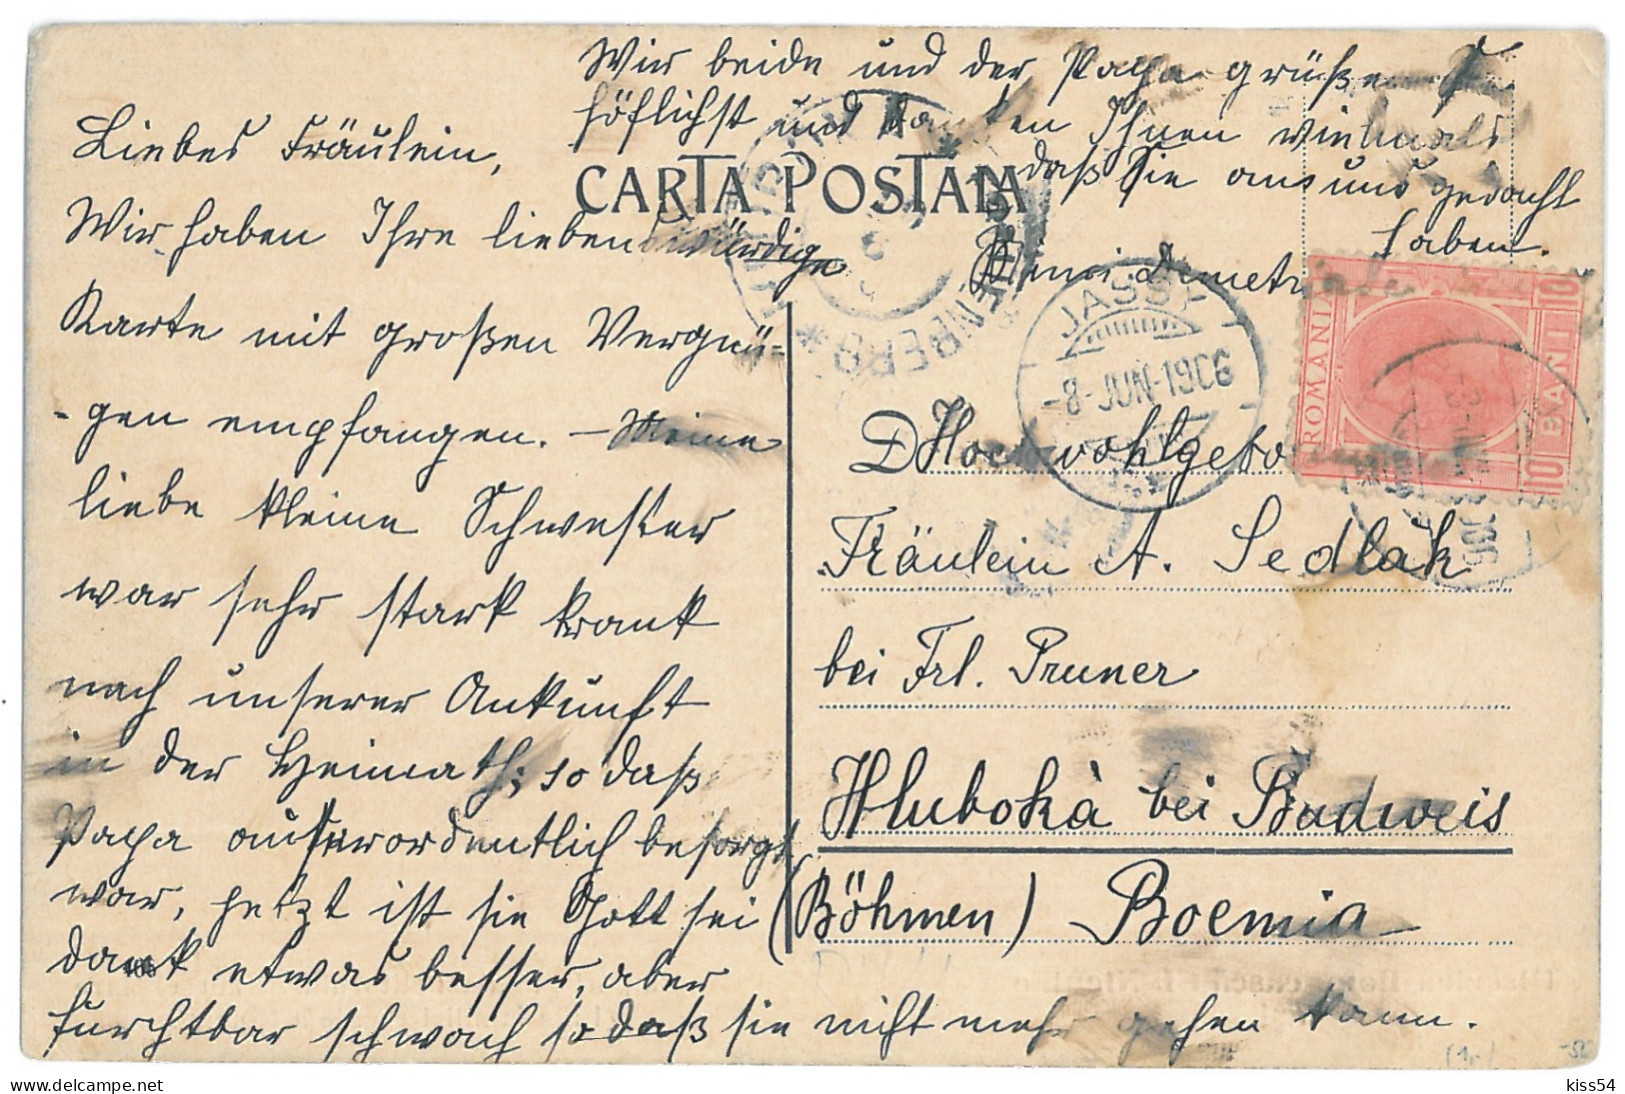 Liebes Fräulein,
Wir haben Ihre liebenswürdige
Karte mit großen Vergnü-
-gen empfangen. – Meine
liebe kleine Schwester
war sehr stark krank
nach unserer Ankunft
in der Heimath; so daß
Papa außerordentlich besorgt
war, jetzt ist sie Gott sei
dank etwas besser, aber
furchtbar schwach so daß sie nicht mehr gehen kann.
Wir beide und der Papa grüßen Sie
höflichst und danken Ihnen vielmals
daß Sie an uns gedacht
haben.
CARTA POSTALA
JASSY
-8-JUN-1906
ROMANIA
10 BANI 10
Hochwohlgebo
Fräulein A. Sedlák
bei Frl. Pruner
Hluboká bei Budweis
(Böhmen) Boemia
kiss54